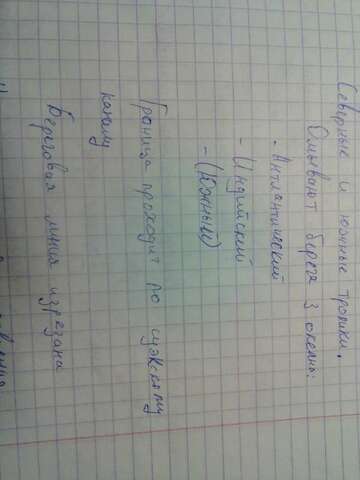 Северные и южные тропики.
Омывают берега 3 океана:
- Атлантический
- Индийский
- (Южный)
Граница проходит по суэкскому
каналу
Береговая линия изрезана